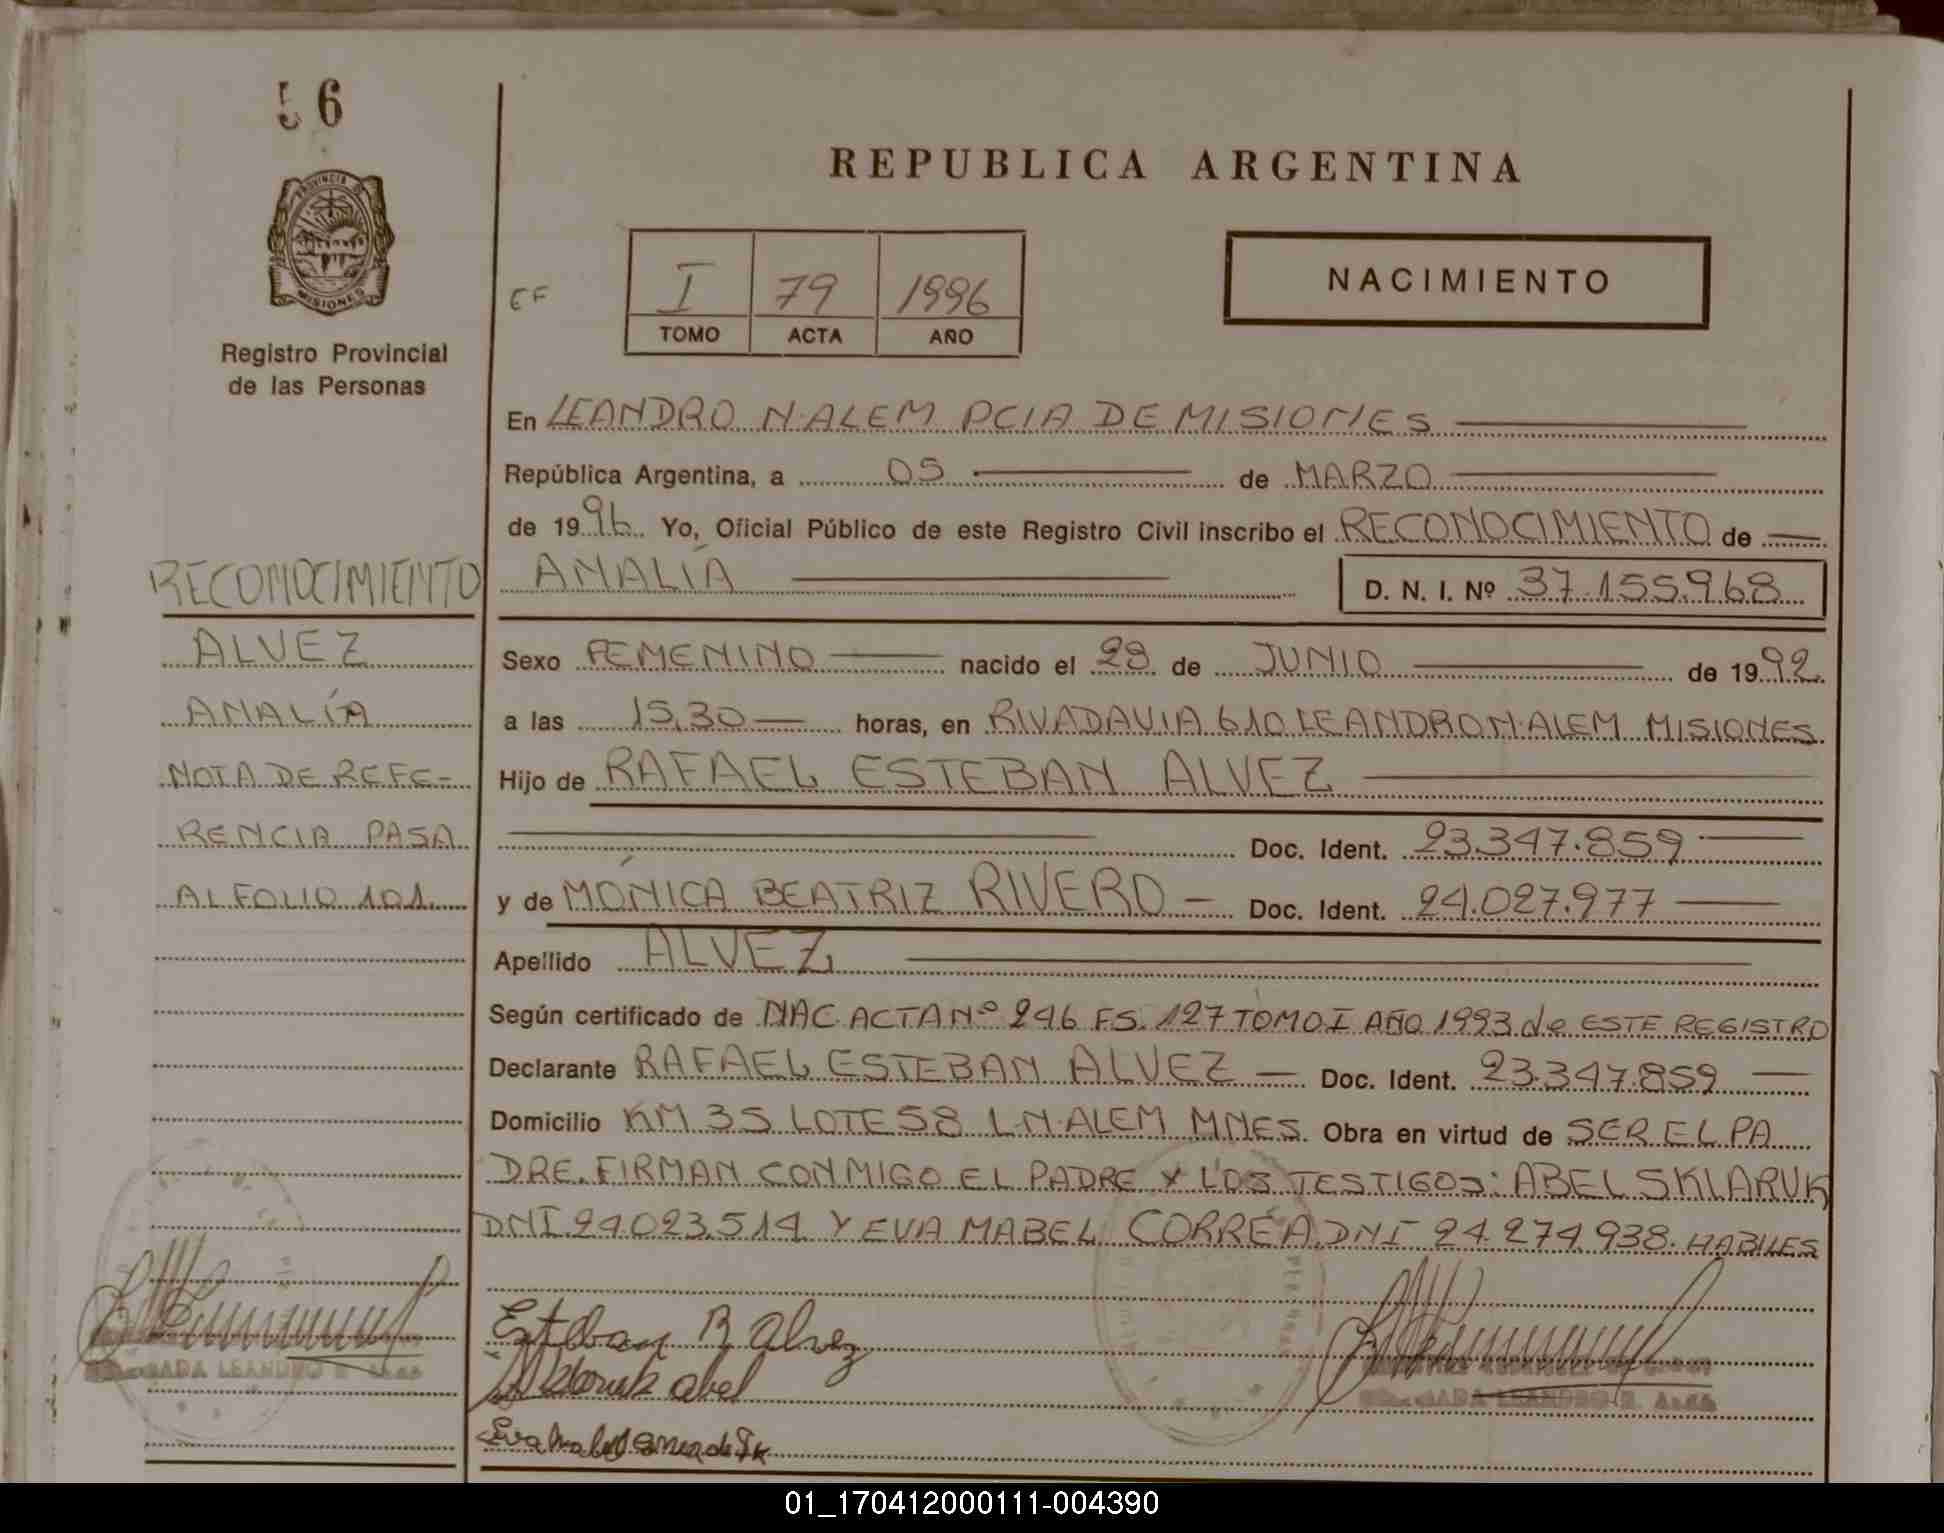 56
PROVINCIA DE
MISIONES
Registro Provincial
de las Personas
REPUBLICA ARGENTINA
CF
I 79 1996
TOMO ACTA AÑO
NACIMIENTO
En LEANDRO N. ALEM PCIA DE MISIONES
República Argentina, a 05 de MARZO
de 1996. Yo, Oficial Público de este Registro Civil inscribo el RECONOCIMIENTO de
AMALÍA D. N. I. Nº 37.155.968
Sexo FEMENINO nacido el 29 de JUNIO de 1992
a las 15,30 horas, en RIVADAVIA 610 LEANDRO N. ALEM MISIONES
Hijo de RAFAEL ESTEBAN ALVEZ
Doc. Ident. 23.347.859
y de MÓNICA BEATRIZ RIVERO Doc. Ident. 24.027.977
Apellido ALVEZ
Según certificado de NAC. ACTA Nº 246 FS. 127 TOMO I AÑO 1993 de ESTE REGISTRO
Declarante RAFAEL ESTEBAN ALVEZ Doc. Ident. 23.347.859
Domicilio KM 35 LOTE 58 L.N. ALEM MNES. Obra en virtud de SER EL PA
DRE. FIRMAN CONMIGO EL PADRE Y LOS TESTIGOS: ABEL SKLARUK
DNI 24.023.514 Y EVA MABEL CORREA DNI 24.274.938. HABILES
Esteban R Alvez
Sklaruk abel
RECONOCIMIENTO
ALVEZ
AMALÍA
NOTA DE REFE=
RENCIA PASA
AL FOLIO 101.
01_170412000111-004390